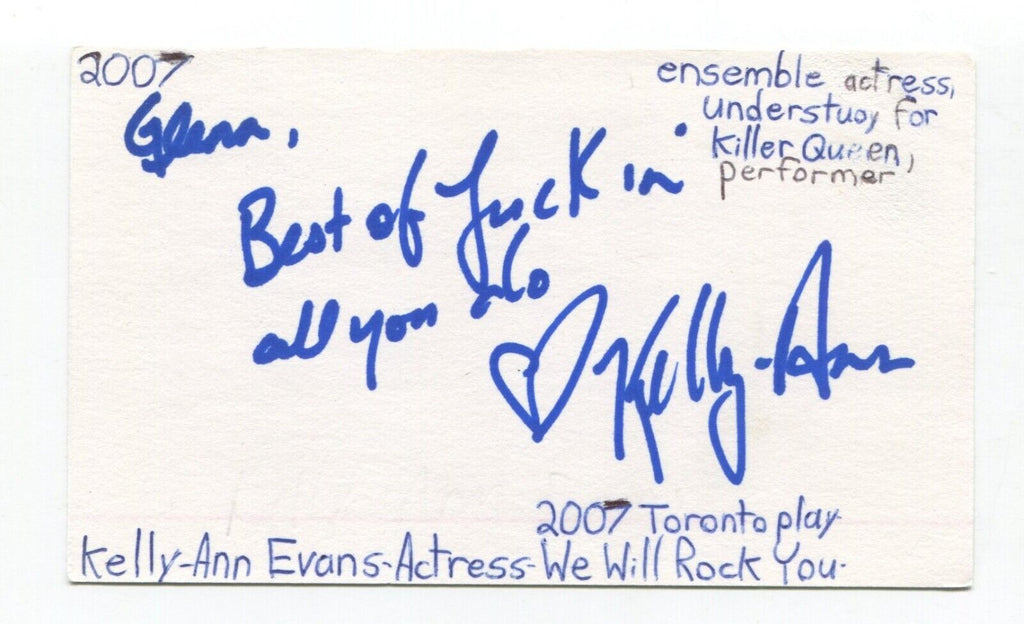 2007
ensemble actress,
understudy for
Killer Queen,
performer
Glenn,
Best of luck in
all you do
♡ Kelly-Ann
2007 Toronto play-
Kelly-Ann Evans-Actress-We Will Rock You-